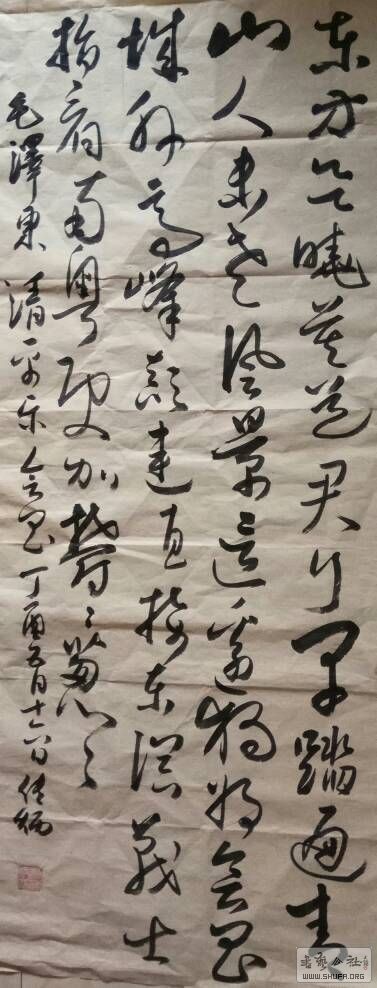 东方欲曉莫道君行早踏遍青
山人未老风景這邊独好会昌
城外高峰颠連直接东溟戰士
指看南粤更加鬱々葱々
毛澤東 清平乐会昌 丁酉五月十六日
书艺公社
WWW.SHUFA.ORG